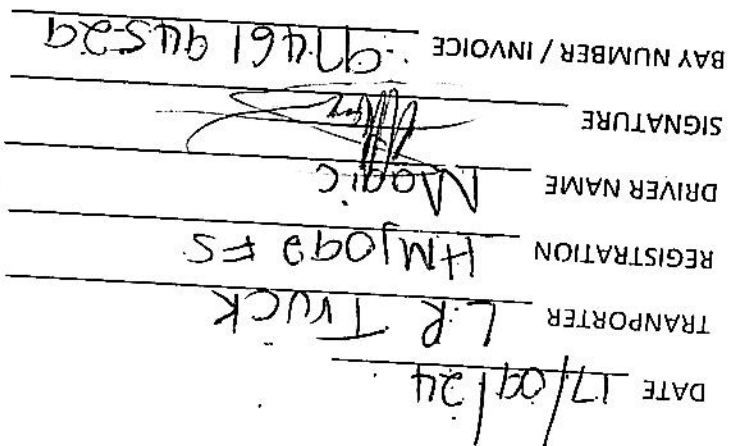 DATE 17/09/24
TRANPORTER L.R Truck
REGISTRATION FS
DRIVER NAME Magic
SIGNATURE
BAY NUMBER / INVOICE 97461 945-29